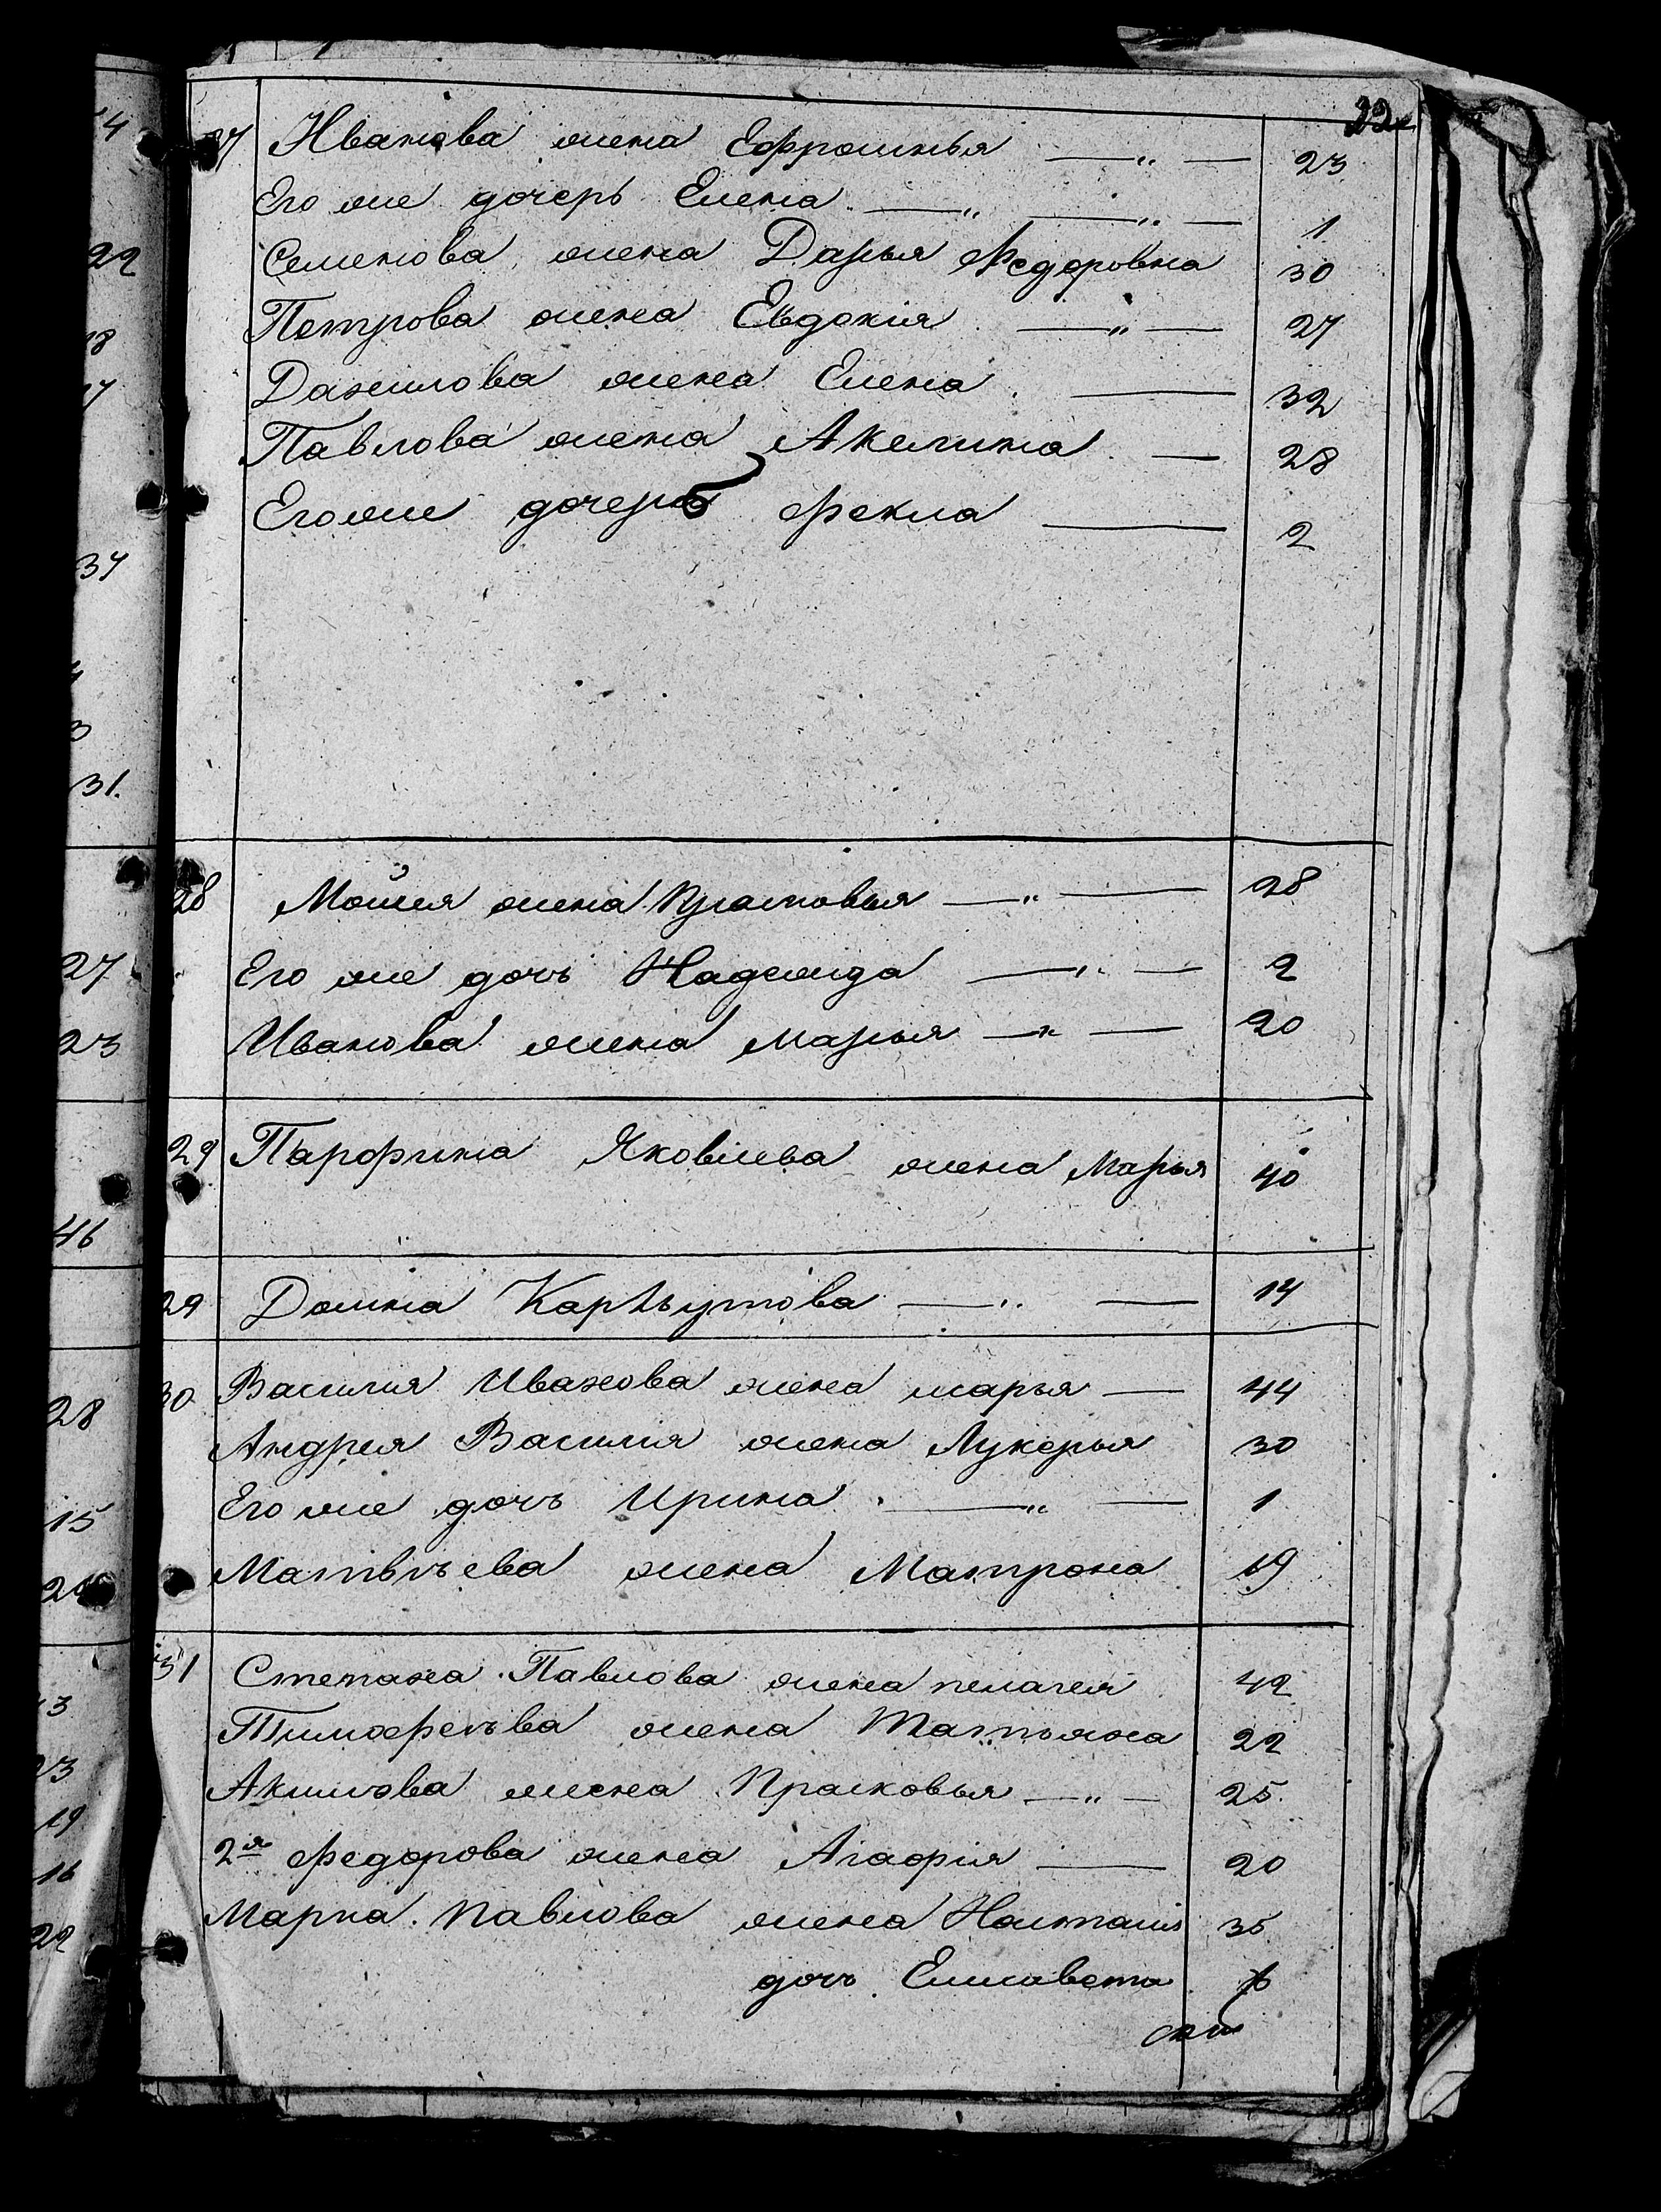 22
27 Иванова жена Ефросинья —„— 23
Его же дочерь Елена —„— —„— 1
Семенова жена Дарья Федоровна 30
Петрова жена Евдокия —„— 27
Данилова жена Елена — 32
Павлова жена Акелина — 28
Его же дочерь Фекла — 2
28 Мойсея жена Прасковья —„— 28
Его же дочь Надежда —„— 2
Иванова жена Марья —„— 20
29 Парфина Яковлева жена Марья 40
29 Домна —„— 14
30 Василия Иванова жена Марья — 44
Андрея Василия жена Лукерья 30
Его же дочь Ирина —„— 1
Матвѣева жена Матрона 19
31 Степана Павлова жена Пелагея 42
Тимофеѣва жена Татьяна 22
Акимова жена Прасковья —„— 25
2я Федорова жена Агафия — 20
Марка Павлова жена 35
дочь Елисавета
4
22
18
17
37
3
31.
27
23
46
28
15
13
23
19
16
22